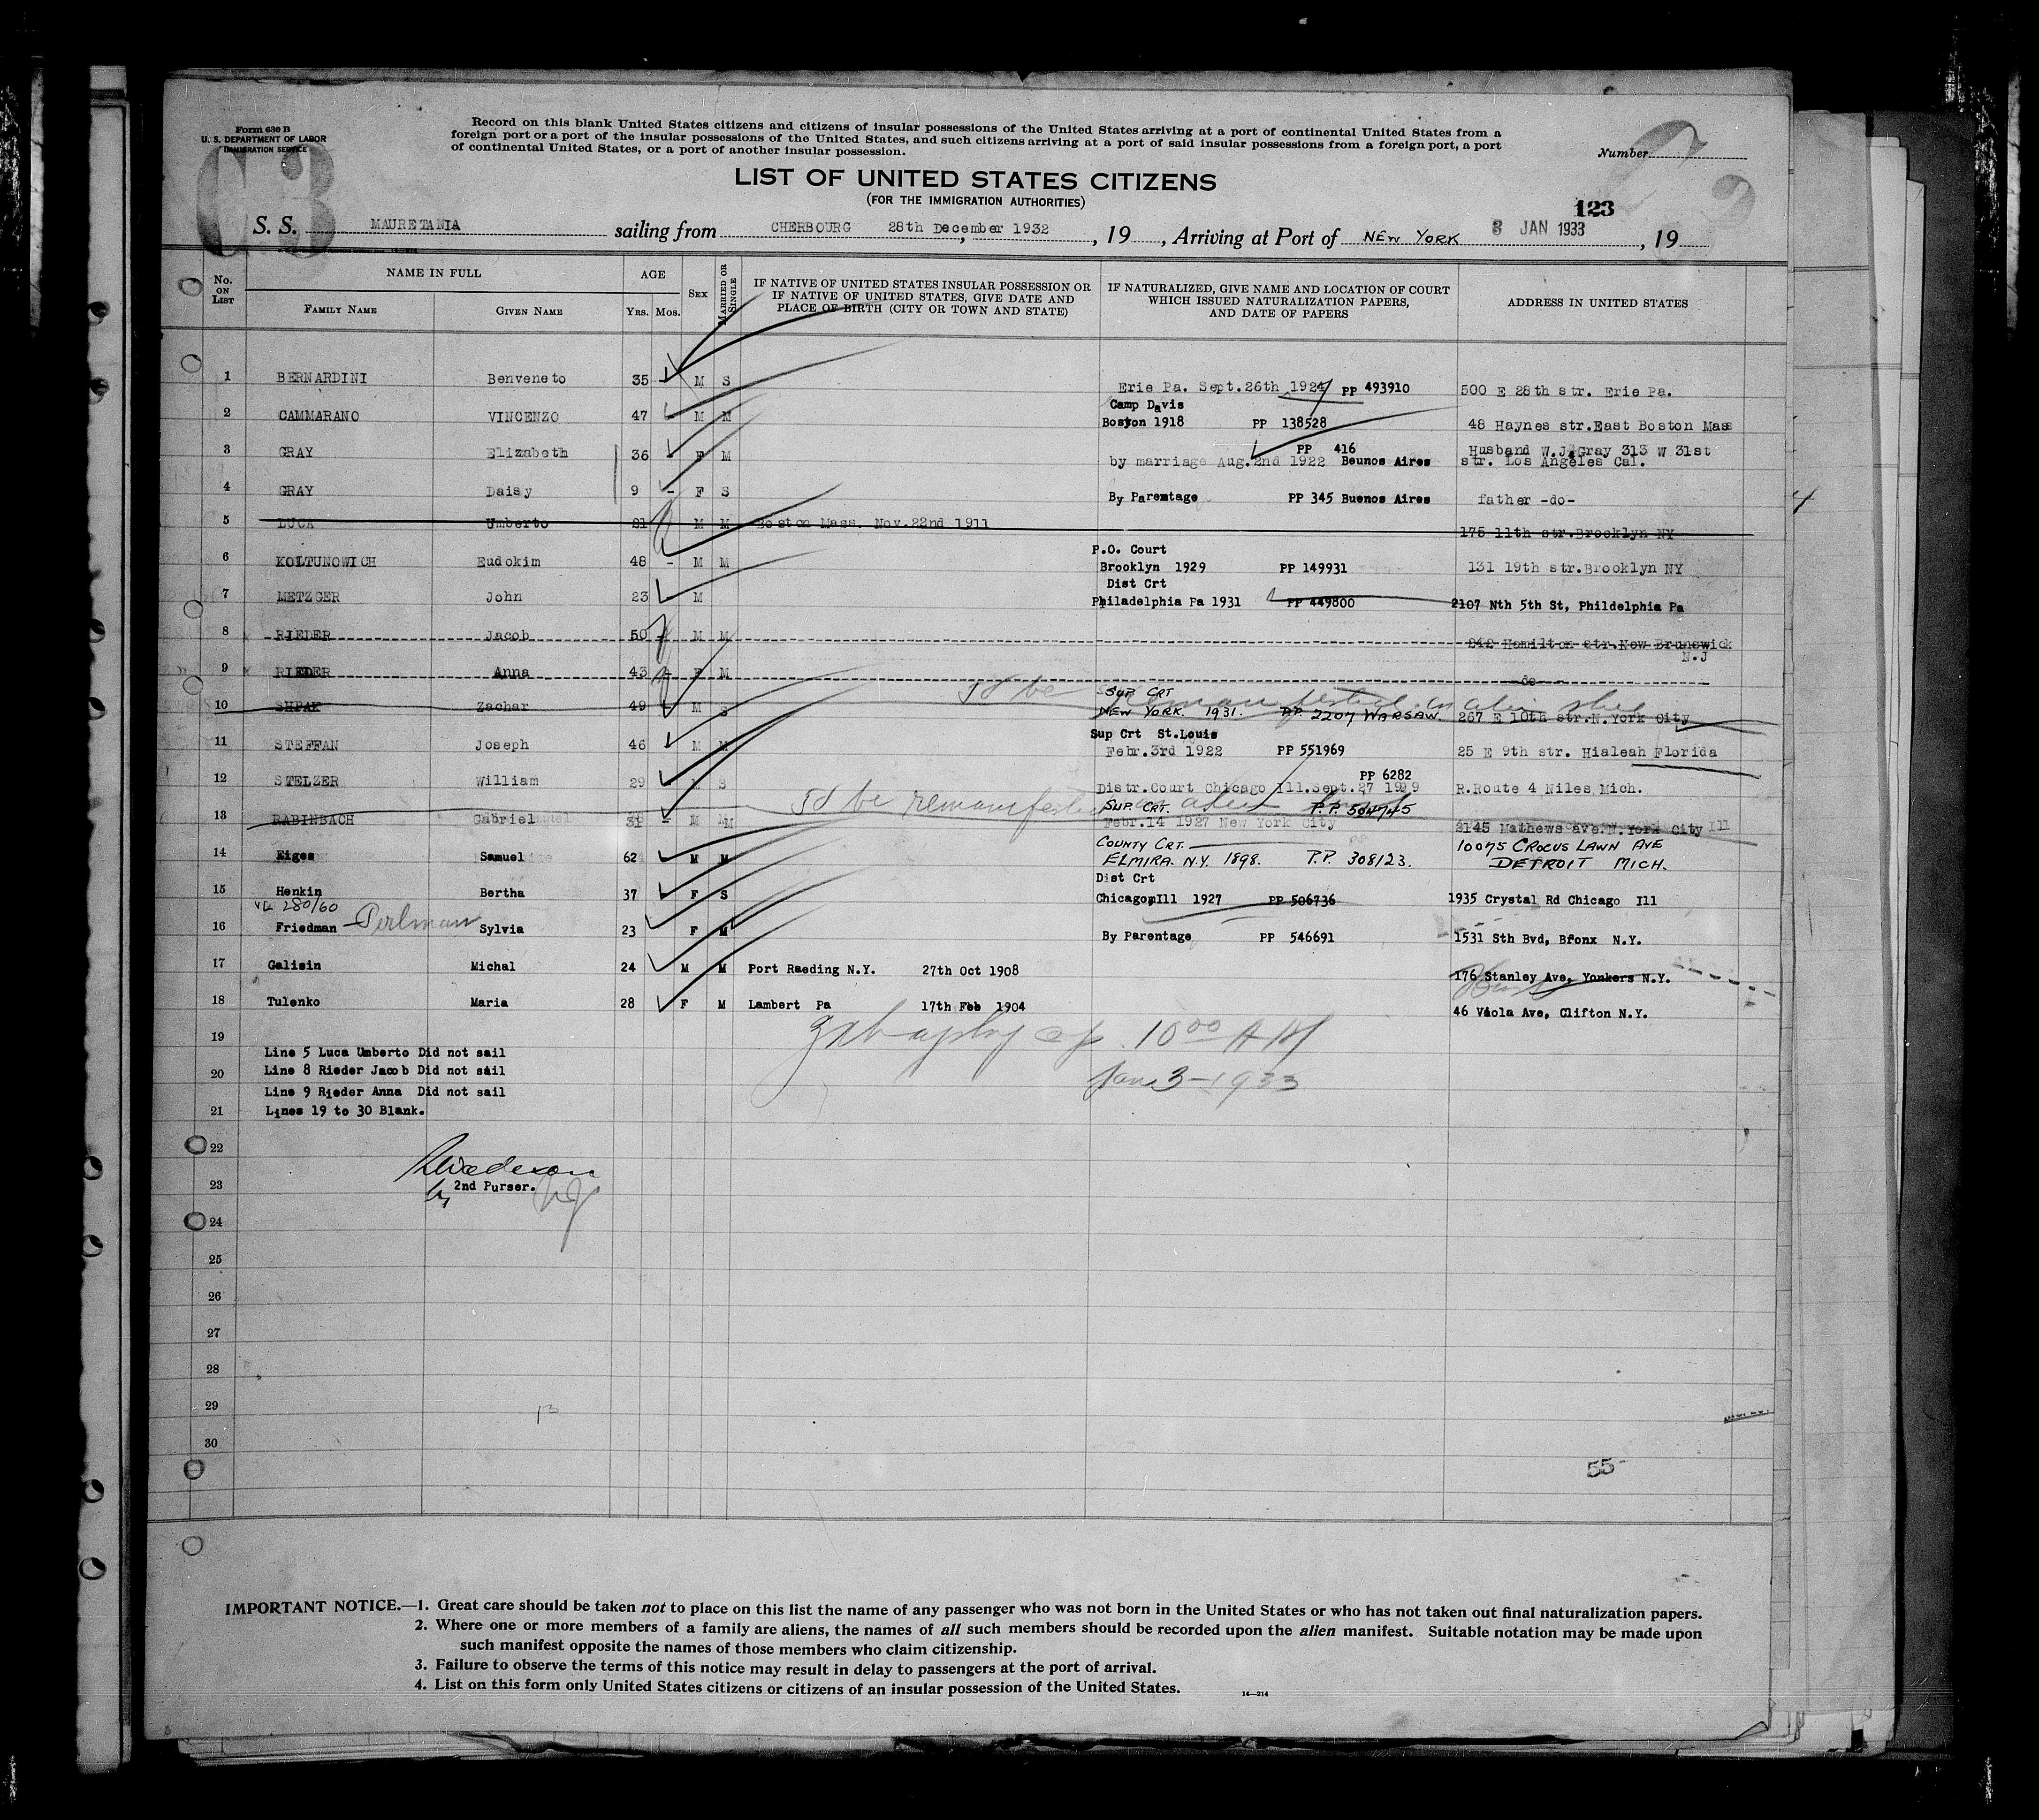 Form 630 B
U. S. DEPARTMENT OF LABOR
IMMIGRATION SERVICE
63
Record on this blank United States citizens and citizens of insular possessions of the United States arriving at a port of continental United States from a
foreign port or a port of the insular possessions of the United States, and such citizens arriving at a port of said insular possessions from a foreign port, a port
of continental United States, or a port of another insular possession.
Number
LIST OF UNITED STATES CITIZENS
(FOR THE IMMIGRATION AUTHORITIES)
123
S. S. MAURETANIA sailing from CHERBOURG 28th December 1932, 19 , Arriving at Port of NEW YORK 3 JAN 1933, 19
No. ON LIST
NAME IN FULL
FAMILY NAME
GIVEN NAME
AGE
YRS. MOS.
SEX
MARRIED OR SINGLE
IF NATIVE OF UNITED STATES INSULAR POSSESSION OR
IF NATIVE OF UNITED STATES, GIVE DATE AND
PLACE OF BIRTH (CITY OR TOWN AND STATE)
IF NATURALIZED, GIVE NAME AND LOCATION OF COURT
WHICH ISSUED NATURALIZATION PAPERS,
AND DATE OF PAPERS
ADDRESS IN UNITED STATES
1 BERNARDINI Benveneto 35 - M S Erie Pa. Sept.26th 1924 PP 493910 500 E 28th str. Erie Pa.
Camp Davis
2 CAMMARANO VINCENZO 47 - M M Boston 1918 PP 138528 48 Haynes str.East Boston Mass
PP 416 Husband W.J.Gray 313 W 31st
3 GRAY Elizabeth 36 - F M by marriage Aug.2nd 1922 Beunos Aires str. Los Angeles Cal.
4 GRAY Daisy 9 - F S By Parentage PP 345 Buenos Aires father -do-
5 LUCA Umberto 21 M M Boston Mass. Nov.22nd 1911 175 11th str.Brooklyn NY
P.O. Court
6 KOLTUNOWICH Eudokim 48 - M M Brooklyn 1929 PP 149931 131 19th str.Brooklyn NY
Dist Crt
7 METZGER John 23 M Philadelphia Pa 1931 PP 449800 2107 Nth 5th St, Phildelphia Pa
8 RIEDER Jacob 50 - M M 242 Hamilton str.New Brunswick
N.J
9 RIEDER Anna 43 - F M -do-
SUP CRT
10 SHPAK Zachar 49 M S NEW YORK. 1931. PP. 2207 WARSAW. 267 E 10th str.N.York City
Sup Crt St.Louis
11 STEFFAN Joseph 46 M M Febr.3rd 1922 PP 551969 25 E 9th str. Hialeah Florida
PP 6282
12 STELZER William 29 M S Distr.Court Chicago Ill.Sept.27 1929 R.Route 4 Niles Mich.
To be remanifested
SUP. CRT. P.P. 504745
13 RABINBACH Gabriel 31 - M M Febr.14 1927 New York City 2145 Mathews ave.N.York City
COUNTY CRT. 10075 CROCUS LAWN AVE
14 Eiges Samuel 62 M M ELMIRA. N.Y. 1898. P.P. 308123. DETROIT MICH.
Dist Crt
15 Henkin Bertha 37 F S Chicago,Ill 1927 PP 506736 1935 Crystal Rd Chicago Ill
280/60
16 Friedman Perlman Sylvia 23 F M By Parentage PP 546691 1531 Sth Bvd, Bronx N.Y.
17 Galisin Michal 24 M M Port Raeding N.Y. 27th Oct 1908 176 Stanley Ave, Yonkers N.Y.
18 Tulenko Maria 28 F M Lambert Pa 17th Feb 1904 46 Viola Ave, Clifton N.Y.
10 00 AM
Jan 3 - 1933
19
Line 5 Luca Umberto Did not sail
20 Line 8 Rieder Jacob Did not sail
Line 9 Rieder Anna Did not sail
21 Lines 19 to 30 Blank.
22
23 2nd Purser.
24
25
26
27
28
29
30
55
IMPORTANT NOTICE.—1. Great care should be taken not to place on this list the name of any passenger who was not born in the United States or who has not taken out final naturalization papers.
2. Where one or more members of a family are aliens, the names of all such members should be recorded upon the alien manifest. Suitable notation may be made upon
such manifest opposite the names of those members who claim citizenship.
3. Failure to observe the terms of this notice may result in delay to passengers at the port of arrival.
4. List on this form only United States citizens or citizens of an insular possession of the United States.
14—214